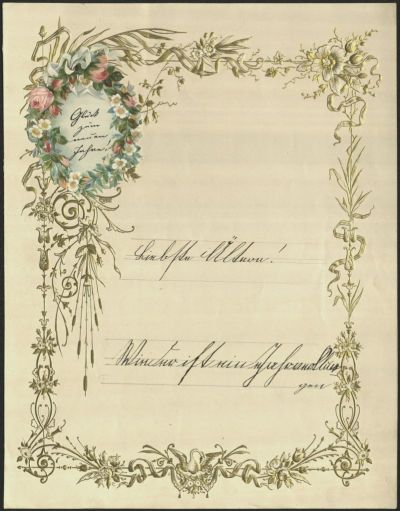 Glück
zum
neuen
Jahre!
Liebste Ältern!
Wieder ist ein Jahr
gen